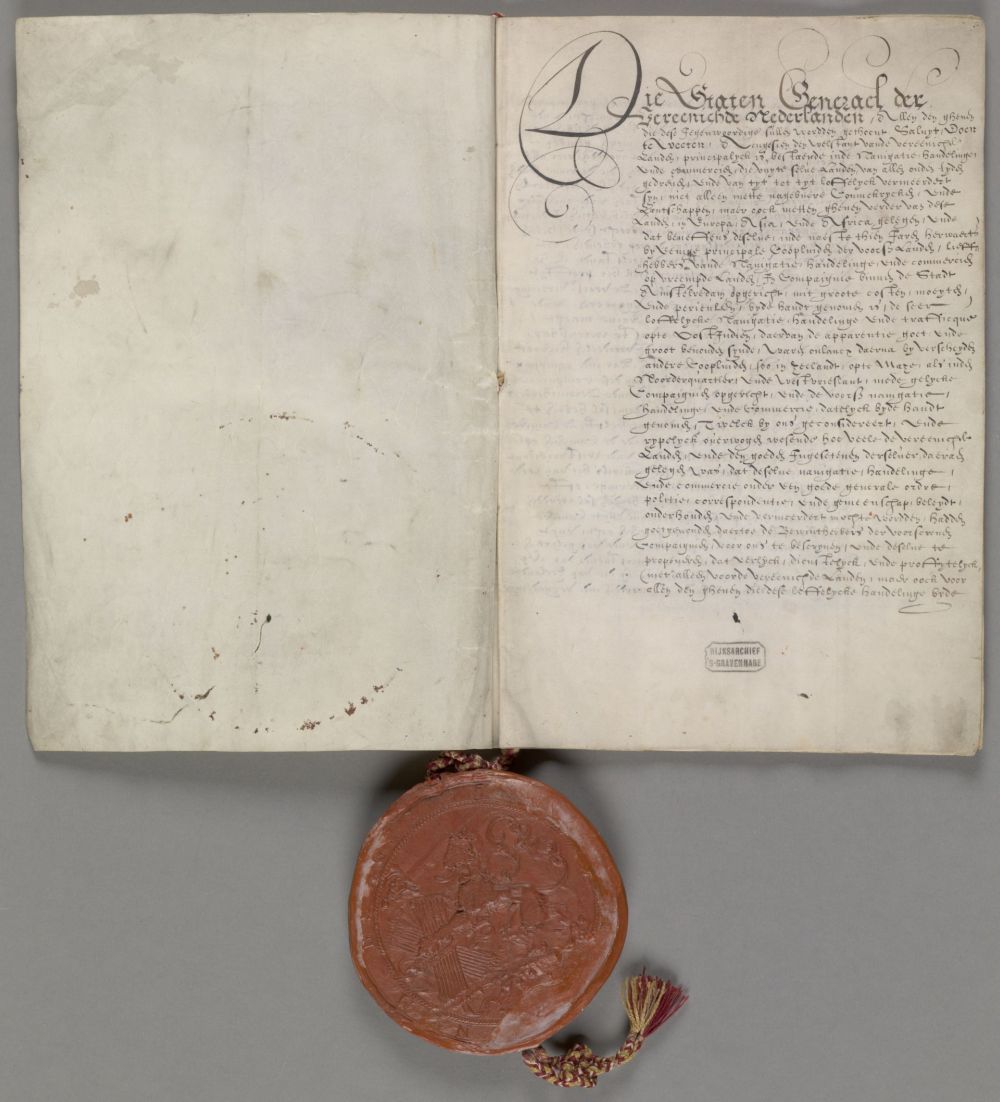 Die Staten Generael der
Vereenichde Nederlanden, Allen den ghenen
die dese Jegenwoordige sullen werdden gethoent Saluyt, Doen
te weeten, Alsoe den welstant vande vereenichde
Landen, principalyck is bestaende inde Navigatie handelinge
ende commercien, die vuyte selve Landen van allen ouden tyden
gedreven, ende van tyt tot tyt loffelyck vermeerdert
syn, niet alleen mette nagebuere Connickrycken, ende
Lantschappen, maer oock metten ghenen verder van dese
Landen, in Europa, Asia, ende Africa gelegen, Ende
dat beneffens deselve, inde naeste thien Jaren herwaerts
by eenige principale Coopluiden der voorss Landen, lieff
hebbers vande Navigatie, handelinge, ende commercien
op vreempde Landen, In Compaignie binnen de Stadt
Amstelredam opgericht, mit groote costen, moeyten,
ende periculen, byde handt genomen is, de seer
loffelycke Navigatie, handelinge ende trafficque
opte Oost Indien, daervan de apparentie goet ende
groot bevonden synde, waren onlancx daerna by verscheyden
andere Coopluiden, soo in Zeelandt, opte Maze, als inden
Noorderquartier, ende Westvrieslant, mede gelycke
Compaignien opgericht, ende de voorss navigatie,
handelinge, ende Commercie, datelyck byde handt
genomen, Twelck by ons geconsidereert, ende
rypelyck overwogen wesende hoe veele de vereenichde
Landen, ende den goeden Ingesetenen derselver daeraen
gelegen was, dat deselve navigatie, handelinge,
ende commercie onder een goede generale ordre,
politie, correspondentie, ende gemeenschap, beleydt,
onderhouden, ende vermeerdert mochte werdden, hadden
goetgevonden daertoe de Bewinthebbers der voorseide
Compaignien, voor ons te bescryven, ende deselve te
proponeren, dat eerlyck, dienstelyck, ende proffytelyck,
niet alleen voorde vereenichde Landen, maer oock voor
allen den ghenen die dese loffelycke handelinge byde
RIJKSARCHIEF
'S-GRAVENHAGE